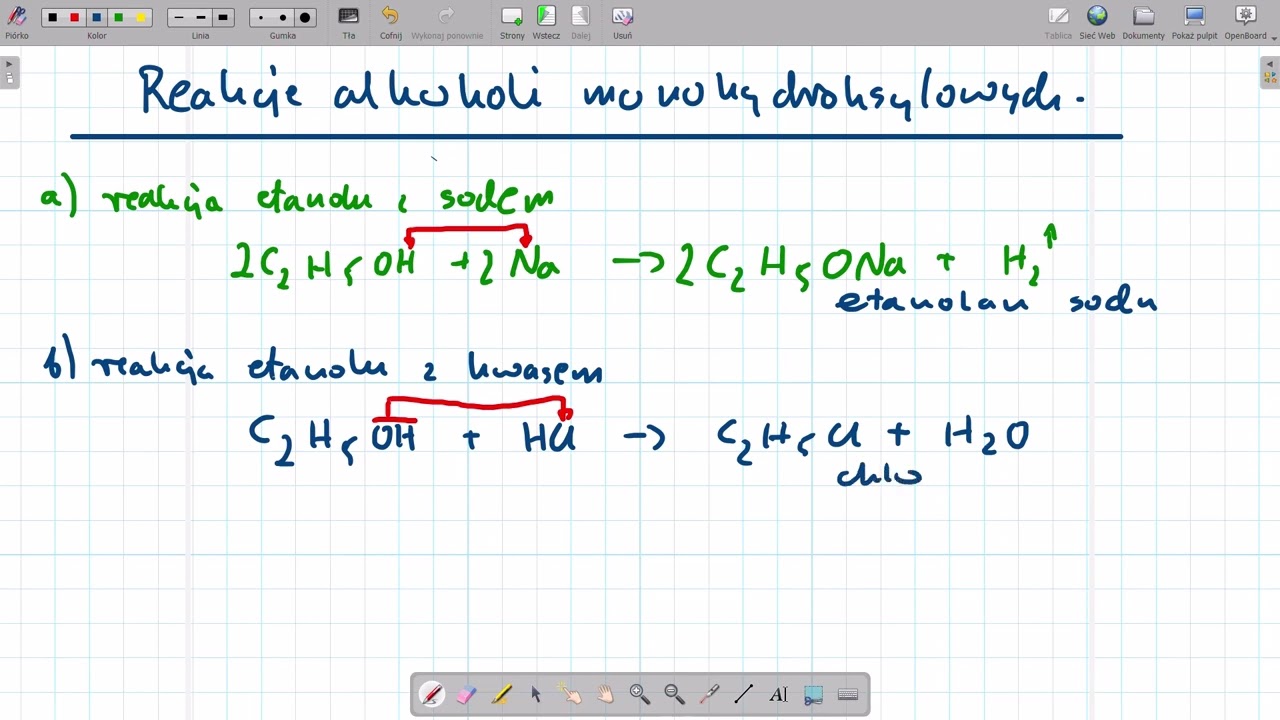 Piórko Kolor Linia Gumka Tła Cofnij Wykonaj ponownie Strony Wstecz Dalej Usuń Tablica Sieć Web Dokumenty Pokaż pulpit OpenBoard
Reakcje alkoholi monohydroksylowych.
a) reakcja etanolu z sodem
2C₂H₅OH + 2Na → 2C₂H₅ONa + H₂↑
etanolan sodu
b) reakcja etanolu z kwasem
C₂H₅OH + HCl → C₂H₅Cl + H₂O
chlo
AI